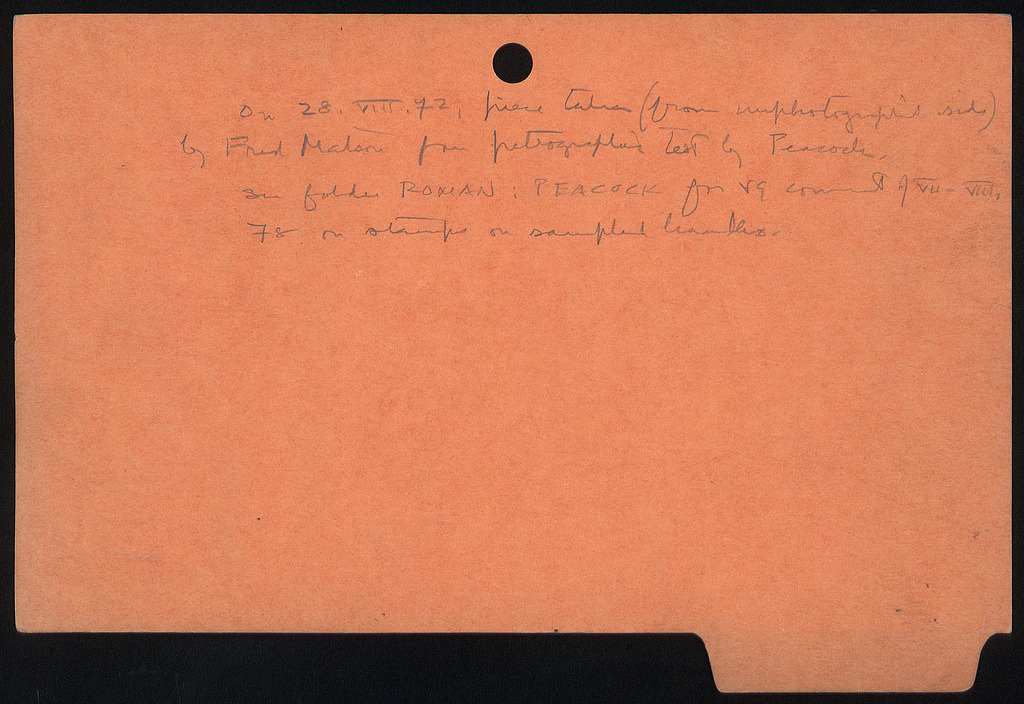 On 28.VIII.72, piece taken (from unphotographed side)
by Fred Matson for petrographic test by Peacock.
See folder ROMAN: PEACOCK for VG comment of VII-VIII.
78 on stamps on sampled handles.